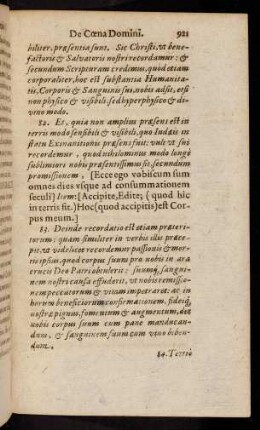 De Cœna Domini. 921
biliter, præsentia sunt. Sic Christi, vt bene-
factoris & Salvatoris nostri recordamur: &
secundum Scripturam credimus, quod etiam
corporaliter, hoc est substantia Humanita-
tis, Corporis & Sanguinis sui, nobis adsit, etsi
non physico & visibili, sed hyperphysico & di-
vino modo.
82. Et, quia non amplius præsens est in
terris modo sensibili & visibili, quo Iudæis in
statu Exinanitionis præsens fuit: vult vt sui
recordemur, quod nihilominus modo longè
sublimiori nobis præsentissimus sit secundum
promissionem, [Ecce ego vobiscum sum
omnes dies vsque ad consummationem
seculi] Item: [Accipite, Edite; (quod hic
in terris fit.) Hoc (quod accipitis) est Cor-
pus meum.]
83. Deinde recordatio est etiam præteri-
torum: quam similiter in verbis illis præce-
pit, vt videlicet recordemur passionis & mor-
tis ipsius, quod corpus suum pro nobis in ara
crucis Deo Patri obtulerit: suumq́, sangui-
nem nostra causa effuderit, vt nobis remissio-
nem peccatorum & vitam impetraret: ac in
horum beneficiorum confirmationem, fideiq́,
nostræ pignus, fomentum & augmentum, det
nobis corpus suum cum pane manducan-
dum, & sanguinem suum cum vino biben-
dum.
84. Tertiò